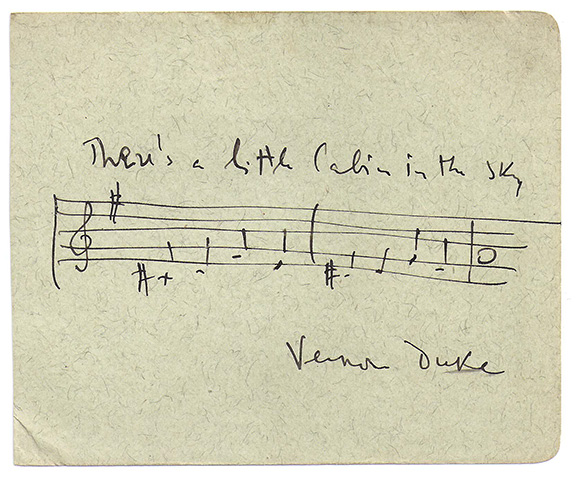 There's a little Cabin in the sky
Vernon Duke